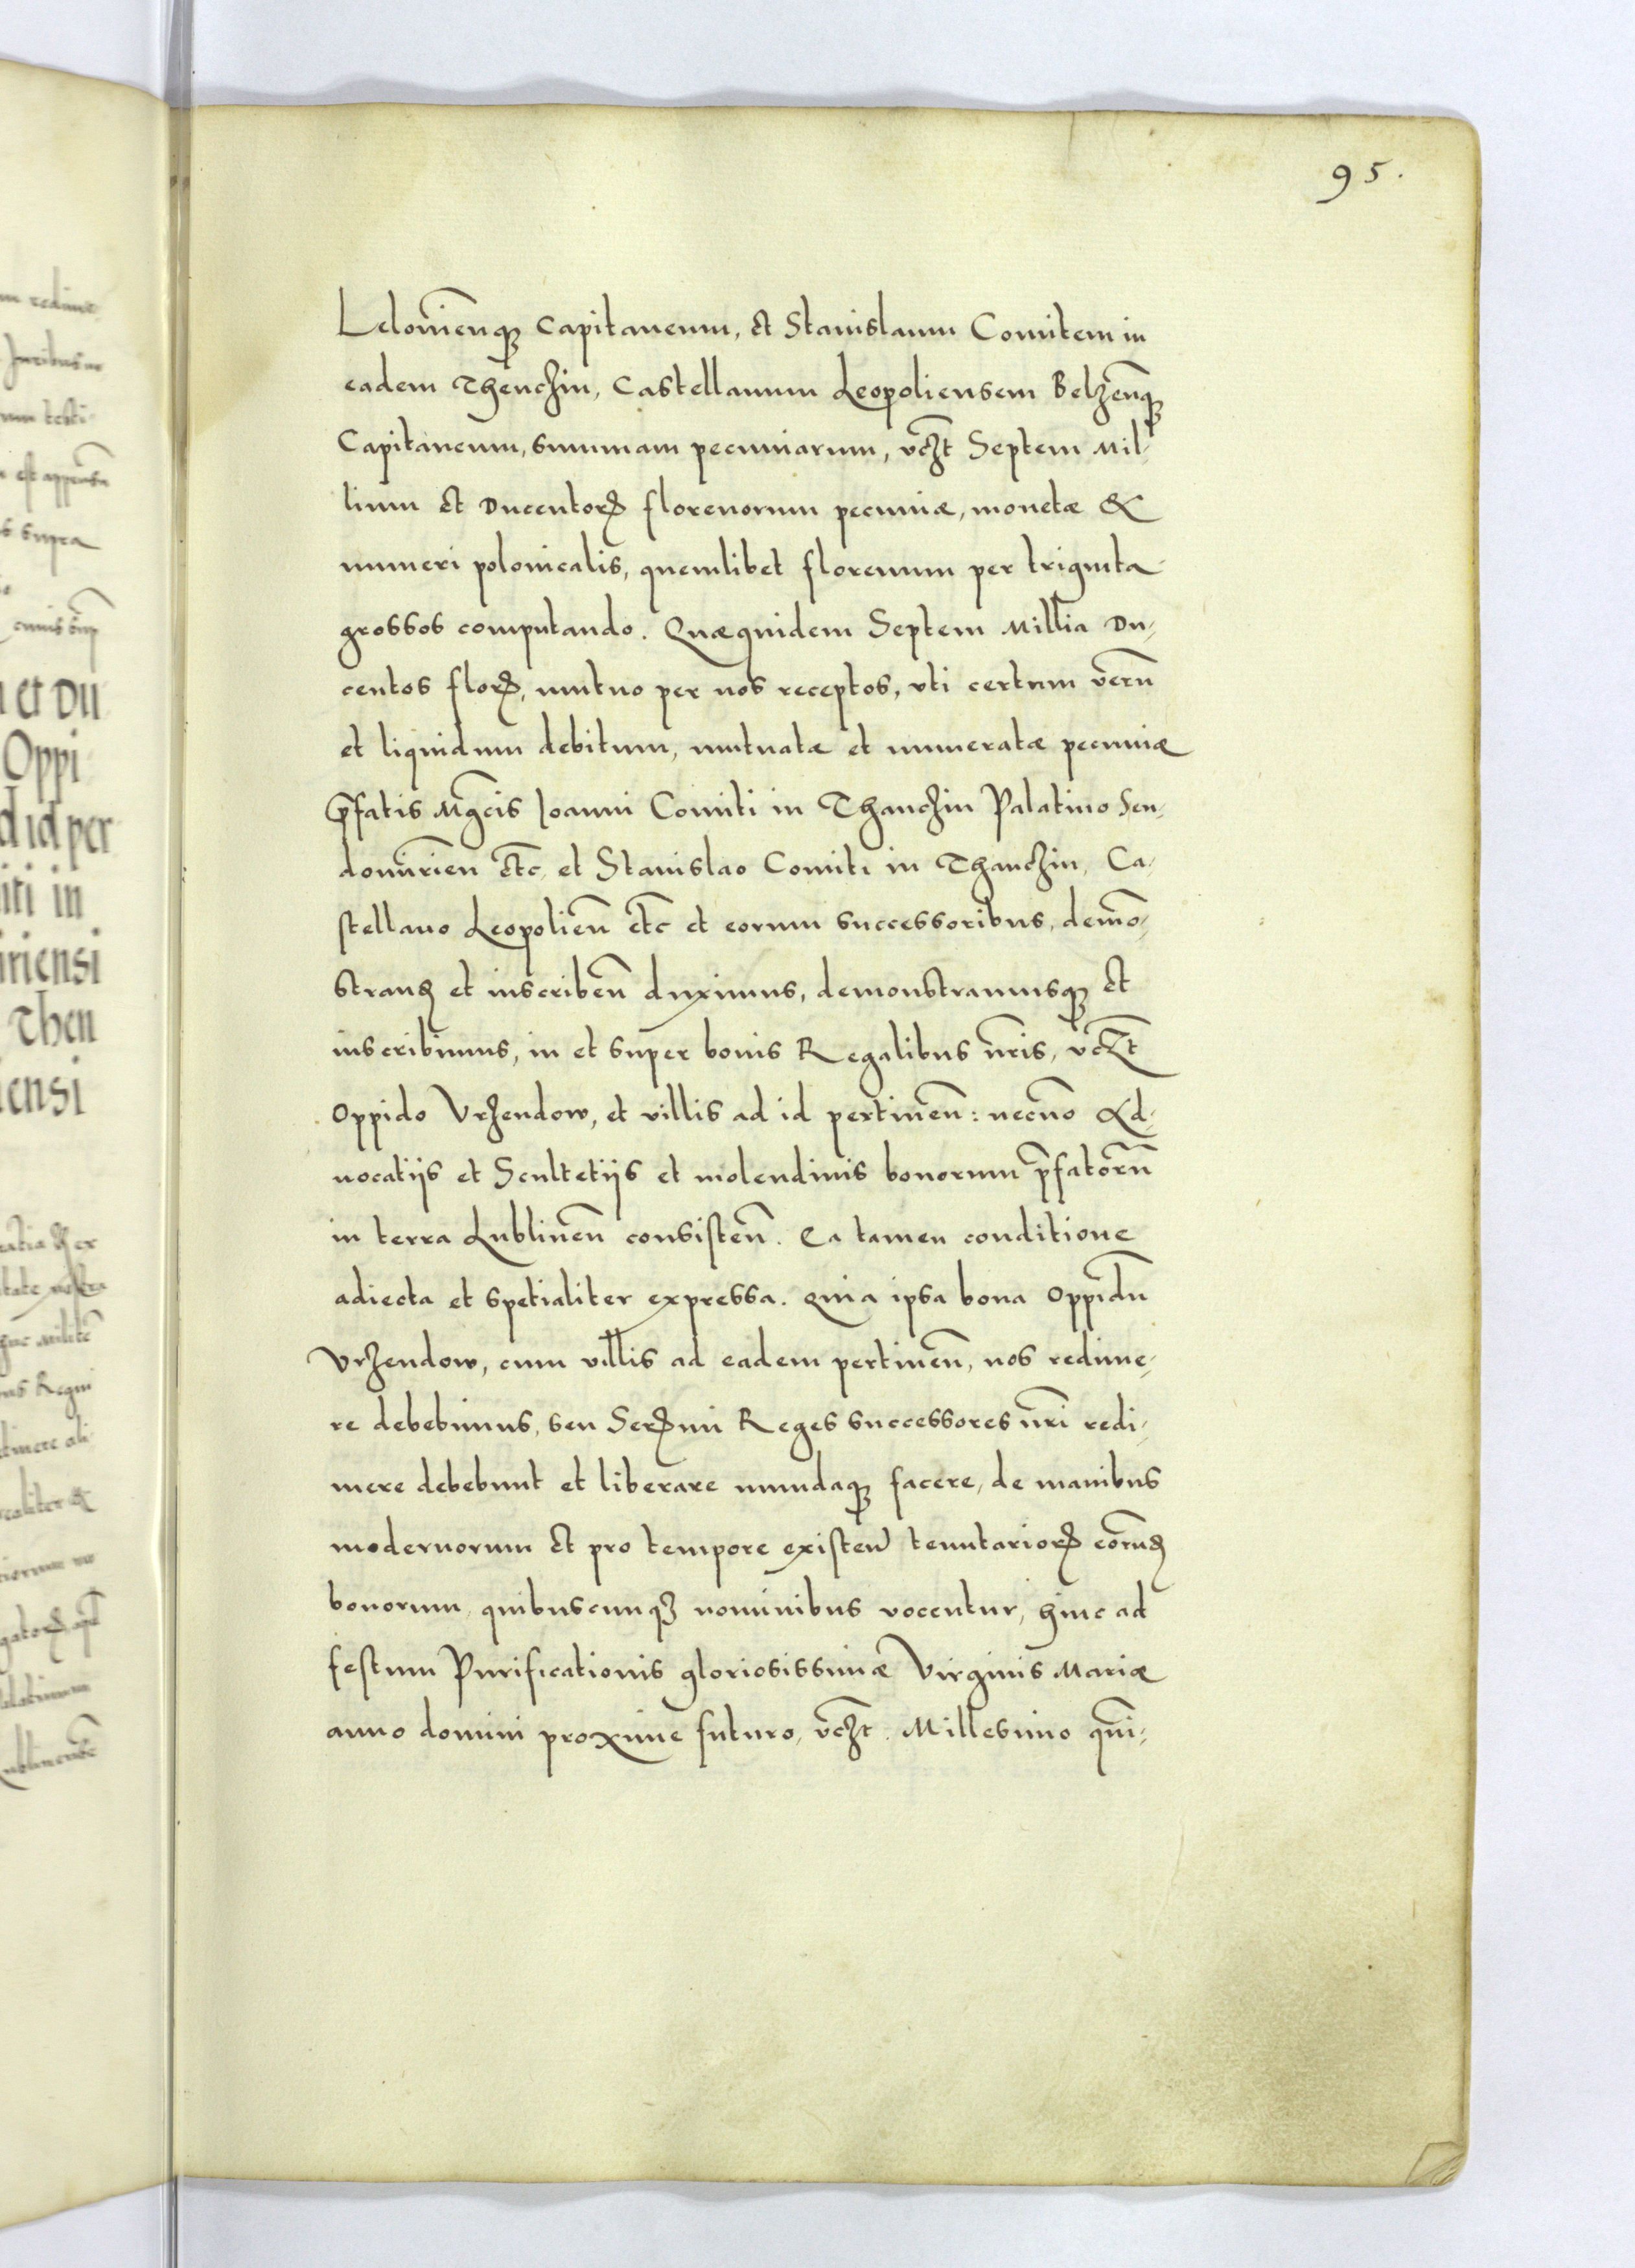 95.
Lelovieñqꝫ Capitaneum, et Stanislaum Comitem in
eadem Thenczin, Castellanum Leopoliensem Belzeñqꝫ
Capitaneum, summam pecuniarum, vcꝫt Septem Mil-
lium et Ducentoꝝ florenorum pecuniæ, monetæ &
numeri polonicalis, quemlibet florenum per triginta
grossos computando. Quæquidem Septem Millia Du-
centos floꝝ, mutuo per nos receptos, vti certum verũ
et liquidum debitum, mutuatæ et numeratæ pecuniæ
p̃fatis Mgcis Joanni Comiti in Thanczin Palatino Sen-
domirieñ etc. et Stanislao Comiti in Thanczin, Ca-
stellano Leopolieñ etc et eorum successoribus, demõ-
strand et inscribeñ duximus, demonstramusqꝫ et
inscribimus, in et super bonis Regalibus nr̃is, vcꝫt
Oppido Vrzendow, et villis ad id pertineñ: necnõ Ad-
uocatijs et Scultetijs et molendinis bonorum p̃fatorũ
in terra Lublineñ consisteñ. Ea tamen conditione
adiecta et spetialiter expressa. Quia ipsa bona Oppidũ
Vrzendow, cum villis ad eadem pertineñ, nos redime-
re debebimus, seu Serꝝmi Reges successores nr̃i redi-
mere debebunt et liberare mundaqꝫ facere, de manibus
modernorum et pro tempore existeñ tenutarioꝝ eorund
bonorum, quibuscunqꝫ nominibus vocentur, hinc ad
festum Purificationis gloriosissimæ Virginis Mariæ
anno domini proxime futuro, vcꝫt. Millesimo qui-